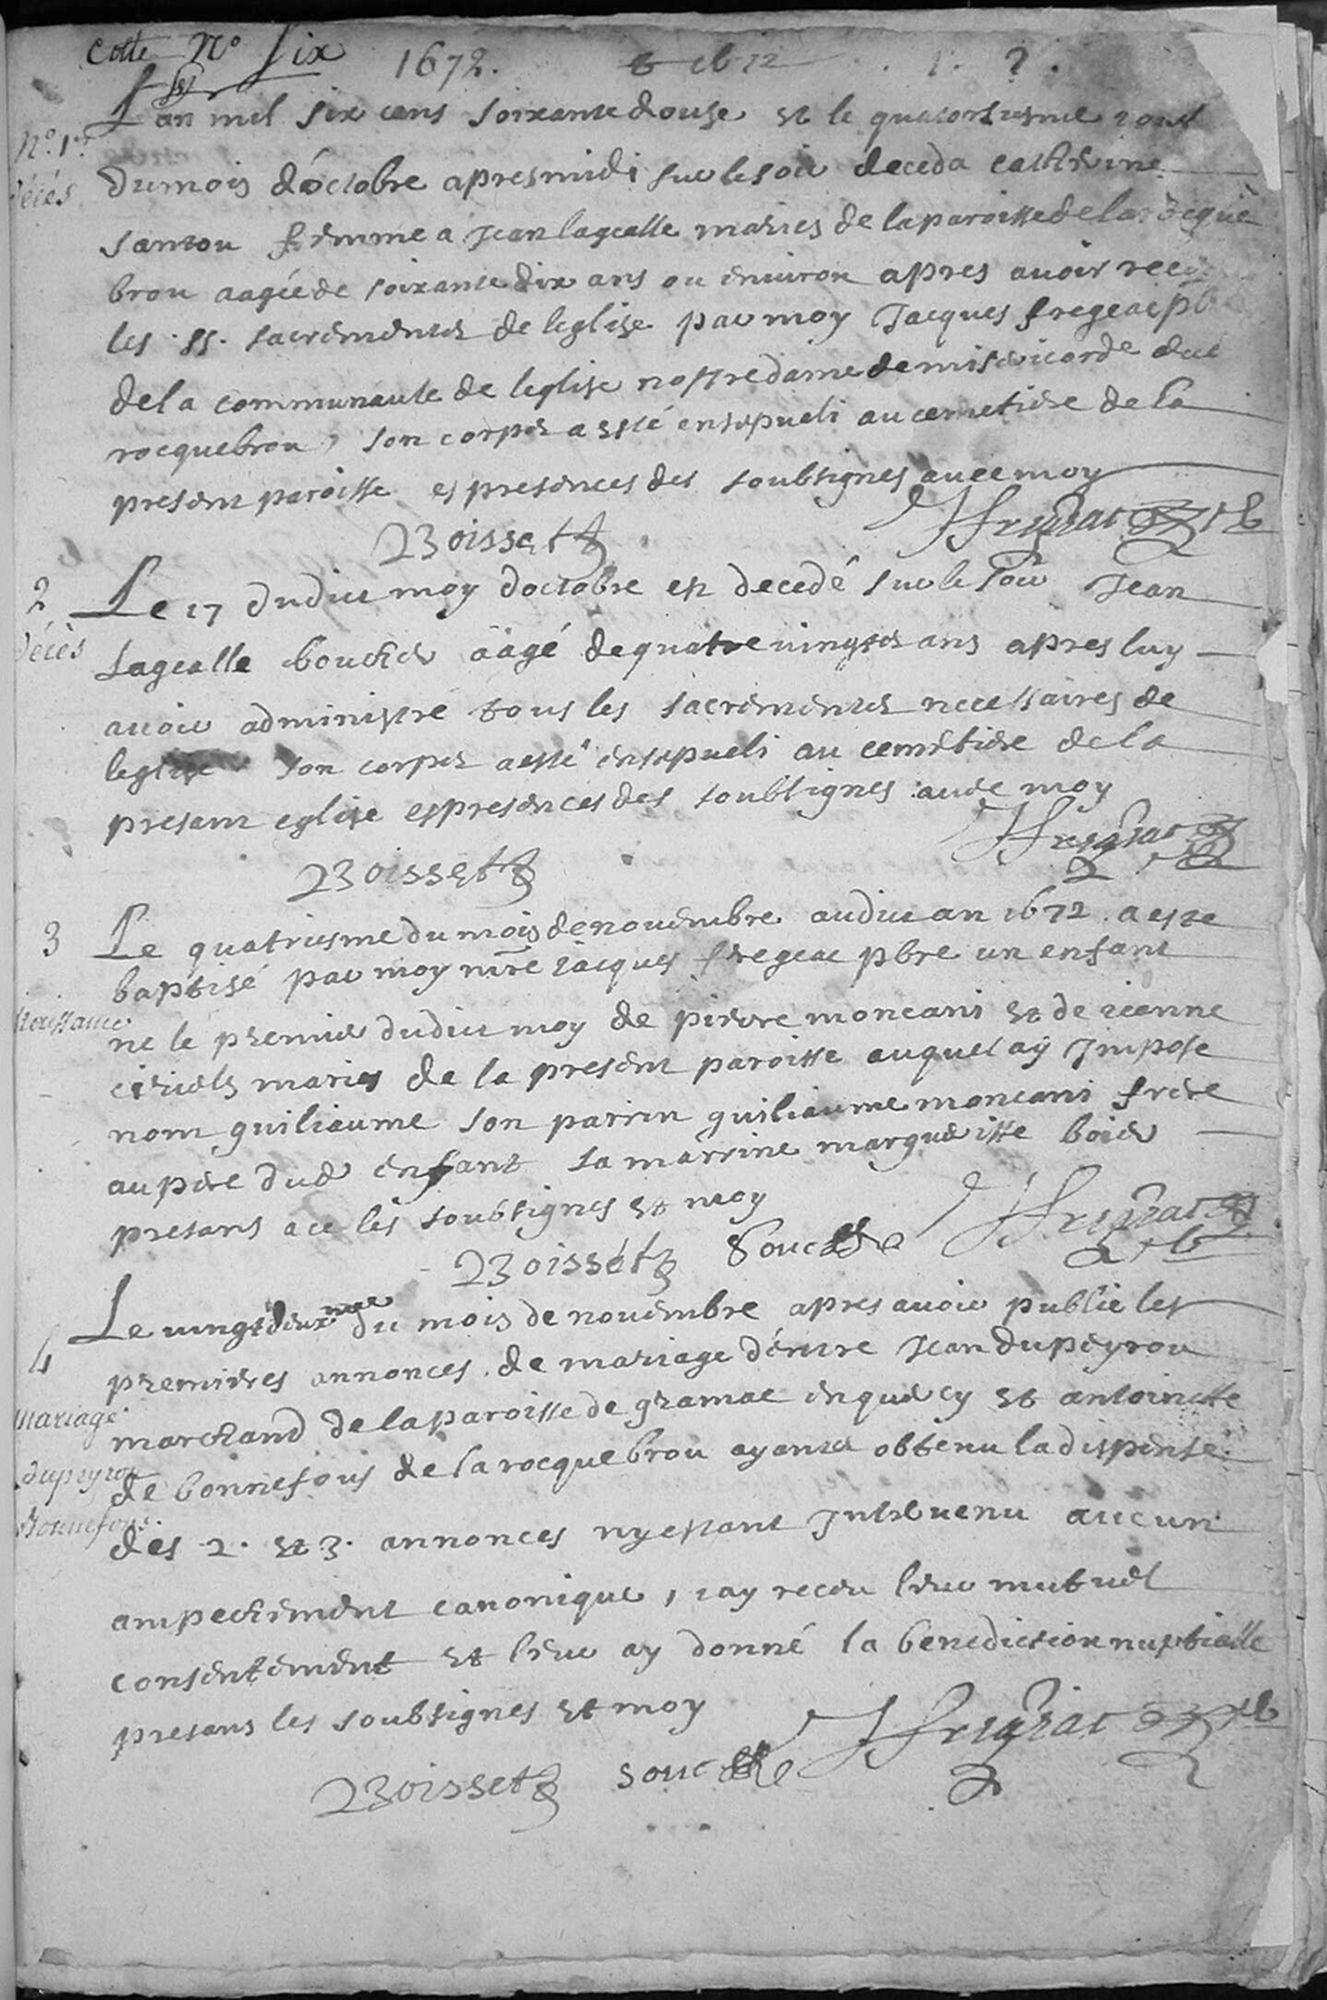 Cotte No Six 1672.
Lan mil six cens soixante douze et le quatorsiesme jour
No. 1er
décés
du mois d'octobre apres midi sur le soir deceda catherine
santou femme a Jean lagealle maries de la paroisse de la rocque
brou aagée de soixante dix ans ou environ apres avoir receu
les ss. sacrements de leglise par moy Jacques fregeac pb
de la communaute de leglise nostre dame de misericorde
rocquebrou, son corps a esté ensepveli au cemetiere de la
present paroisse es presences des soubsignes avec moy
Boisset
JFregeac
2
décés
Le 17 dudit moy doctobre est decedé sur le soir Jean
Lagealle boucher aagé de quatre vingts ans apres luy
avoir administré tous les sacrements necessaires de
leglise son corps a esté ensepveli au cemetiere de la
presant eglise es presences des soubsignes avec moy
JFregeac
Boisset
3
Naissance
Le quatriesme du mois de novembre audit an 1672. a este
baptisé par moy mre jacques fregeac pbre un enfant
ne le premier dudit moy de pierre moncani et de jeanne
maries de la present paroisse auquel ay Imposé
nom guiliaume son parrin guiliaume moncani frere
au pere dud enfant sa marrine marguerisse boier
presans a ce les soubsignes et moy
JFregeac
Boisset
4
Mariage
dupeyrou
Bonnefous.
Le vingt deuxme du mois de novembre apres avoir publie les
premieres annonces de mariage d'entre Jean dupeyrou
marchand de la paroisse de gramac en quercy et antoinette
de bonnefous de la rocquebrou ayants obtenu la dispense
des 2. et 3. annonces ny estant Intervenu aucun
ampechement canonique, jay receu leur mutuel
consentement et leur ay donné la benediction nuptialle
presans les soubsignes et moy
JFregeac
Boisset